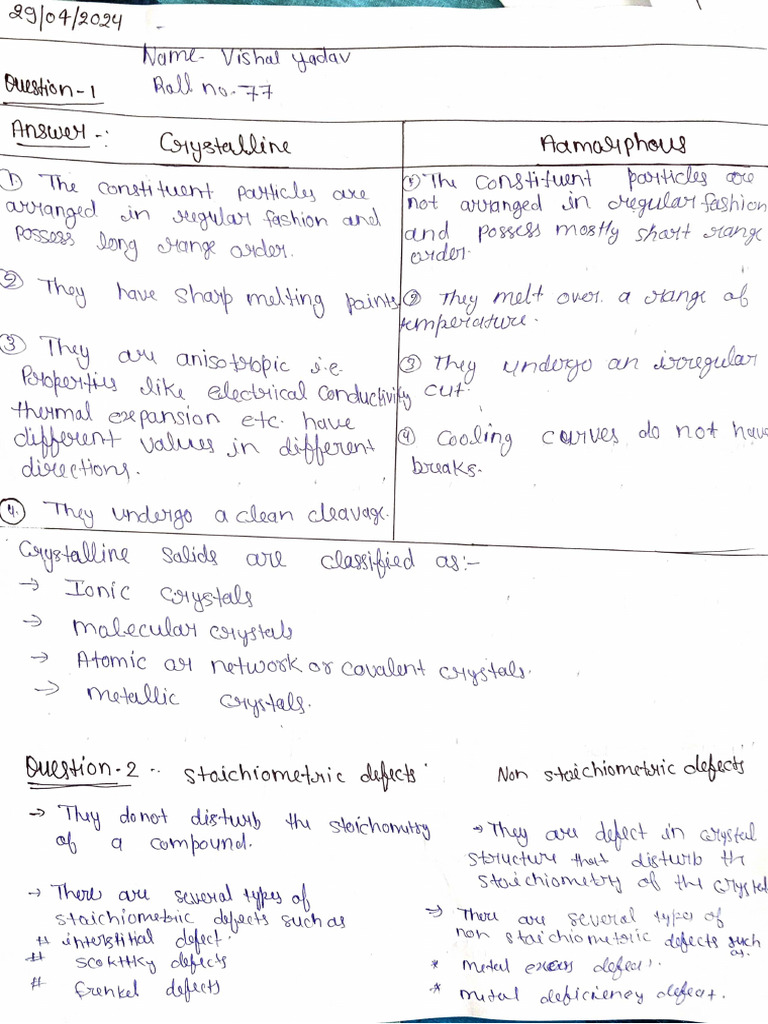 29/04/2024
Name- Vishal Yadav
Question-1
Roll no.-77
Answer-:
Crystalline
① The constituent particles are
arranged in regular fashion and
possess long range order.
② They have sharp melting points
③ They are anisotropic i.e.
Properties like electrical conductivity
thermal expansion etc. have
different values in different
directions.
④. They undergo a clean cleavage.
Aamorphous
① The constituent particles are
not arranged in regular fashion
and possess mostly short range
order.
② They melt over a range of
temperature.
③ They undergo an irregular
cut.
④ Cooling curves do not have
breaks.
Crystalline Solids are classified as:-
→ Ionic crystals
→ Molecular crystals
→ Atomic or network or covalent crystals.
→ Metallic crystals.
Question-2
Stoichiometric defects
→ They do not disturb the stoichometry
of a compound.
→ There are several types of
stoichiometric defects such as
# interstitial defect.
# Scokttky defects
# frenkel defects
Non stoichiometric defects
→ They are defect in crystal
structure that disturb the
stoichiometry of the crystal
→ There are several types of
non stoichiometric defects such
as.
* Metal excess defect.
* Metal deficiency defect.